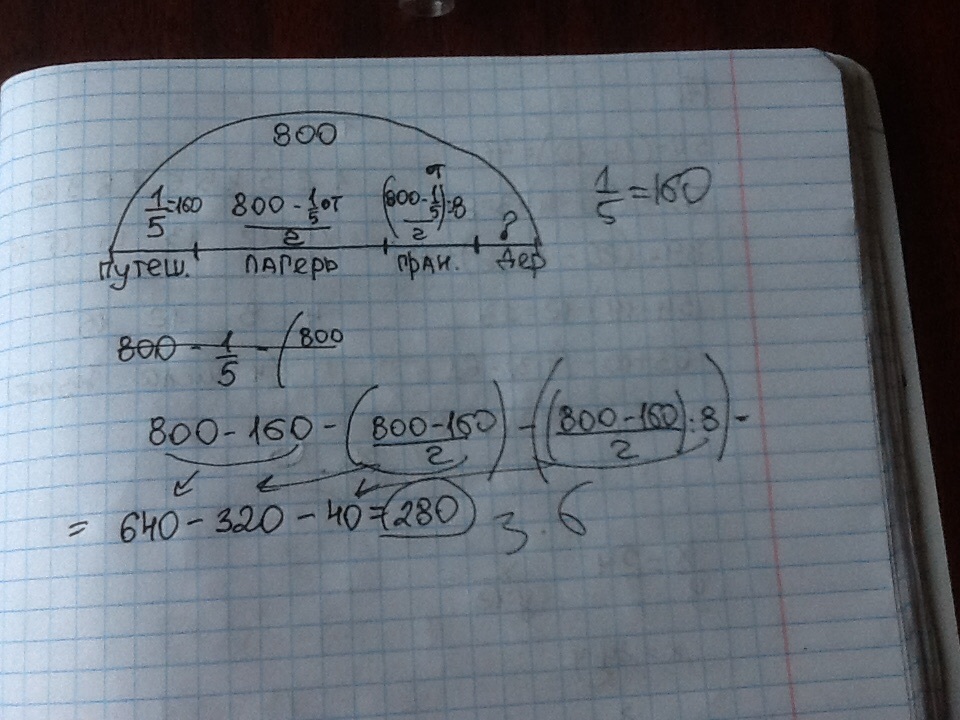 800
1/5=160 (800-1/5 от)/2 ((800-1/5 от)/2):8 ?
Путеш. лагерь гран. дер
1/5=160
800 - 1/5 - (800
800-160-((800-160)/2)-((800-160)/2:8)=
= 640-320-40=280 3.6